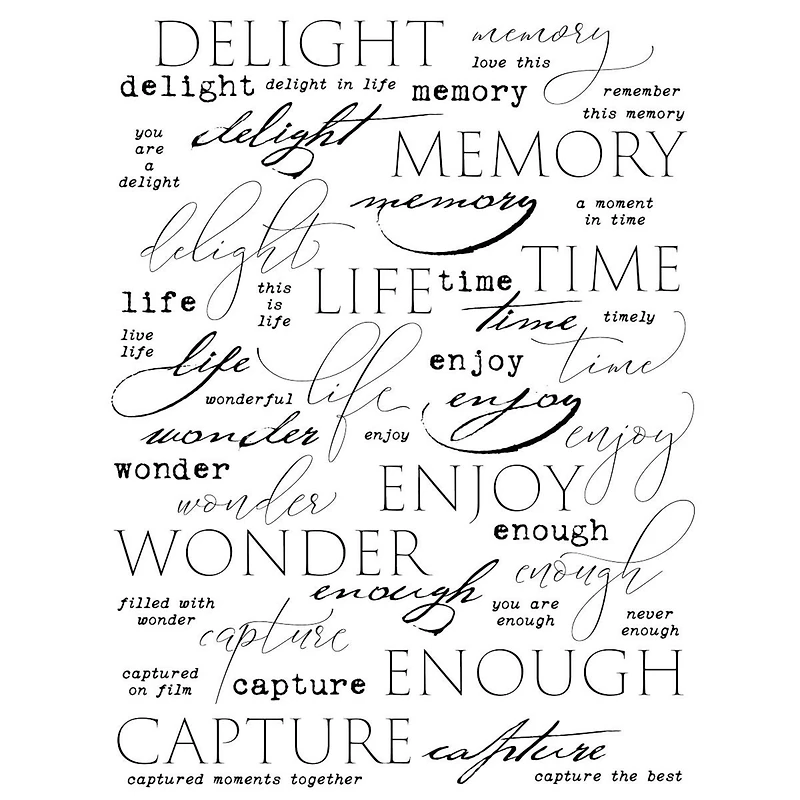 DELIGHT
memory
love this
delight
delight in life
memory
remember
this memory
delight
you
are
a
delight
MEMORY
memory
a moment
in time
delight
TIME
time
LIFE
this
is
life
life
time
timely
live
life
life
life
enjoy
time
wonderful
enjoy
wonder
enjoy
enjoy
wonder
ENJOY
wonder
enough
WONDER
enough
enough
filled with
wonder
you are
enough
never
enough
capture
ENOUGH
captured
on film
capture
CAPTURE
capture
captured moments together
capture the best